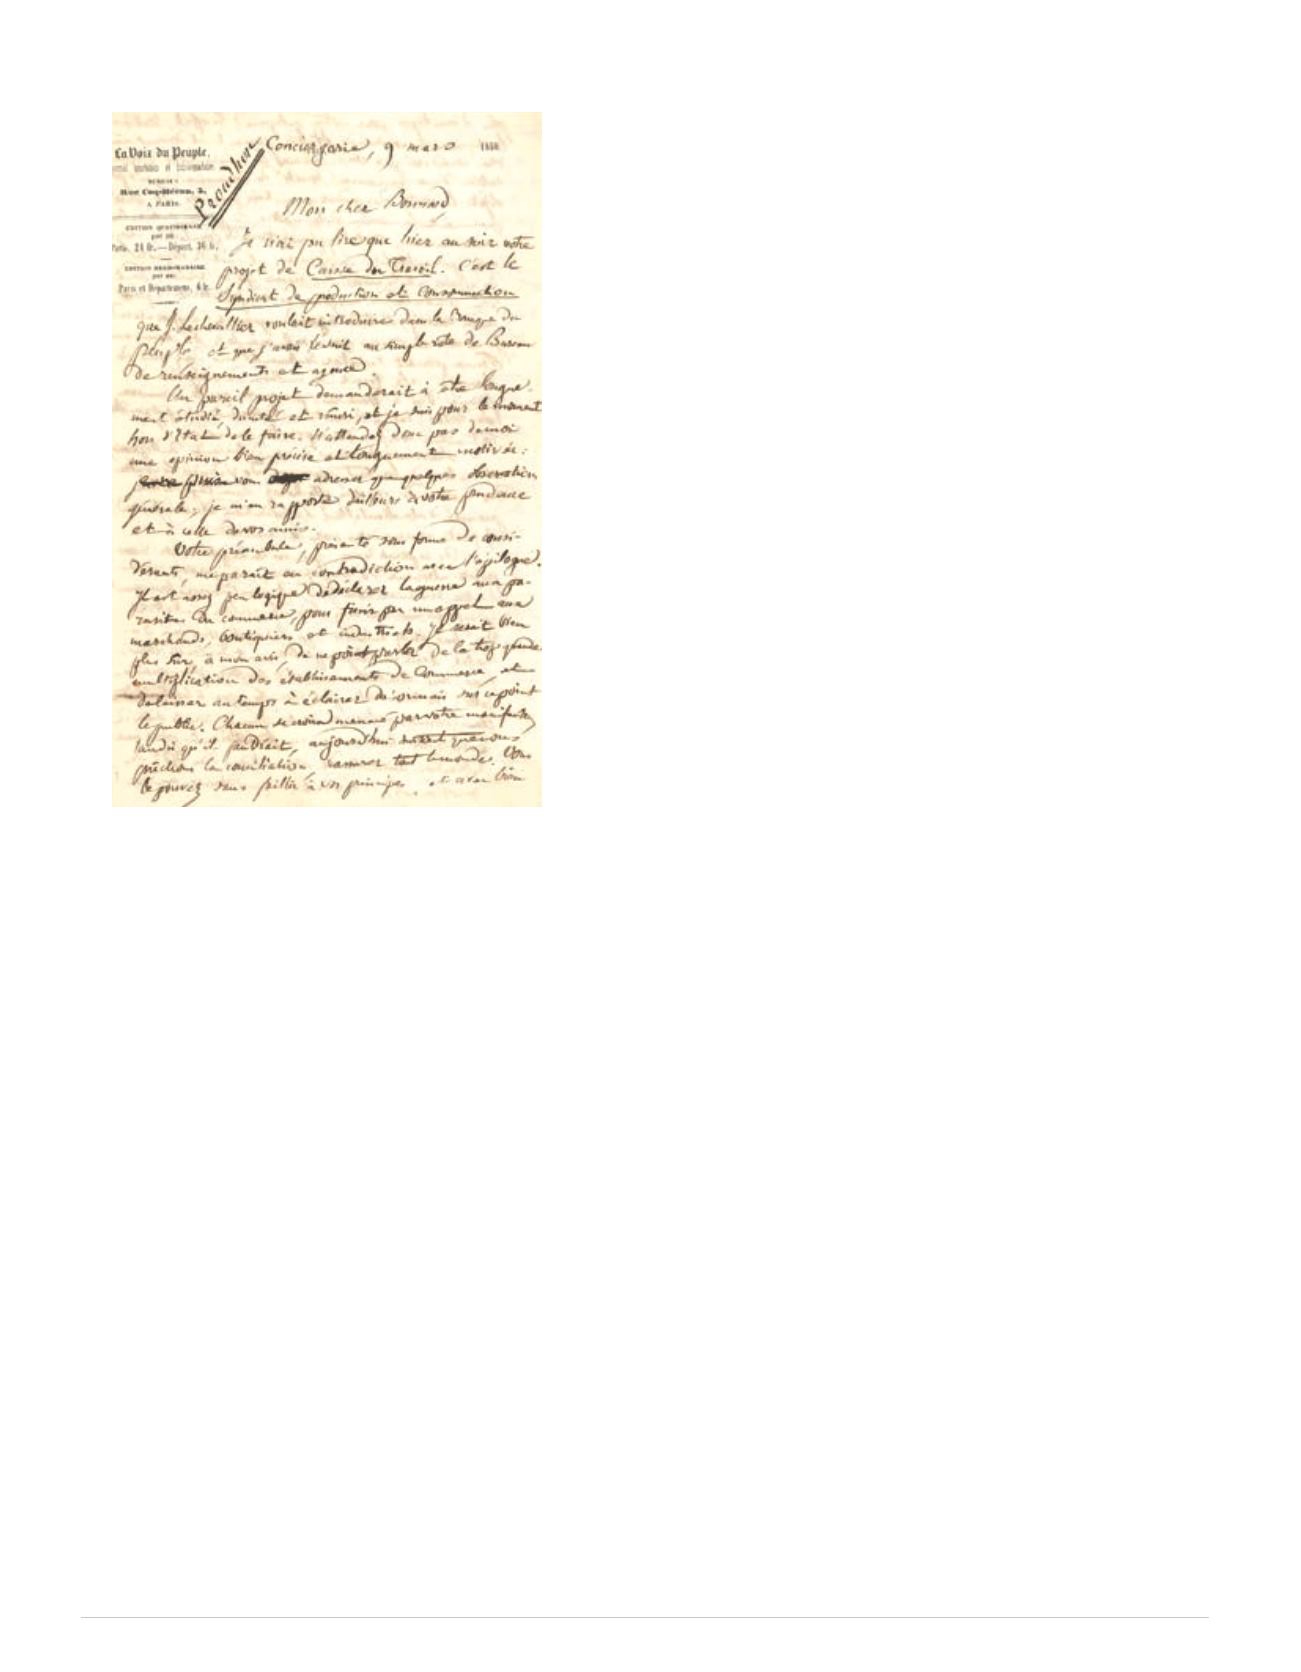 La Voix du Peuple.
BUREAUX :
Rue Coq-Héron, 5,
A PARIS.
ÉDITION QUOTIDIENNE
Paris, 24 fr. — Départ. 36 fr.
ÉDITION HEBDOMADAIRE
Paris et Départements, 6 fr.
Proudhon
Conciergerie, 9 mars 1850
Mon cher Bonnard,
Je n'ai pu lire que hier au soir votre
projet de Caisse du Travail. C'est le
Syndicat de production et consommation
que J. Lechevallier voulait introduire dans la Banque du
peuple et que j'avais réduit au simple rôle de Bureau
de renseignements et agence.
Un pareil projet demanderait à être longue-
ment étudié, discuté et mûri, et je suis pour le moment
hors d'état de le faire. N'attendez donc pas de moi
une opinion bien précise et longuement motivée :
vous adresser que quelques observations
générales ; je m'en rapporte d'ailleurs à votre prudence
et à celle de vos amis.
Votre préambule, présenté sous forme de consi-
dérants, me paraît en contradiction avec l'épilogue.
Il est assez peu logique de déclarer la guerre aux pa-
rasites du commerce, pour finir par un appel aux
marchands, boutiquiers et industriels. Il serait bien
plus sûr, à mon avis, de ne point parler de la trop grande
multiplication des établissements de commerce, et
de laisser au temps à éclairer désormais sur ce point
le public. Chacun se croira menacé par votre manifeste,
tandis qu'il faudrait, aujourd'hui surtout que nous
prêchons la conciliation, rassurer tout le monde. Vous
le pouvez sans faillir à vos principes, et avec bien